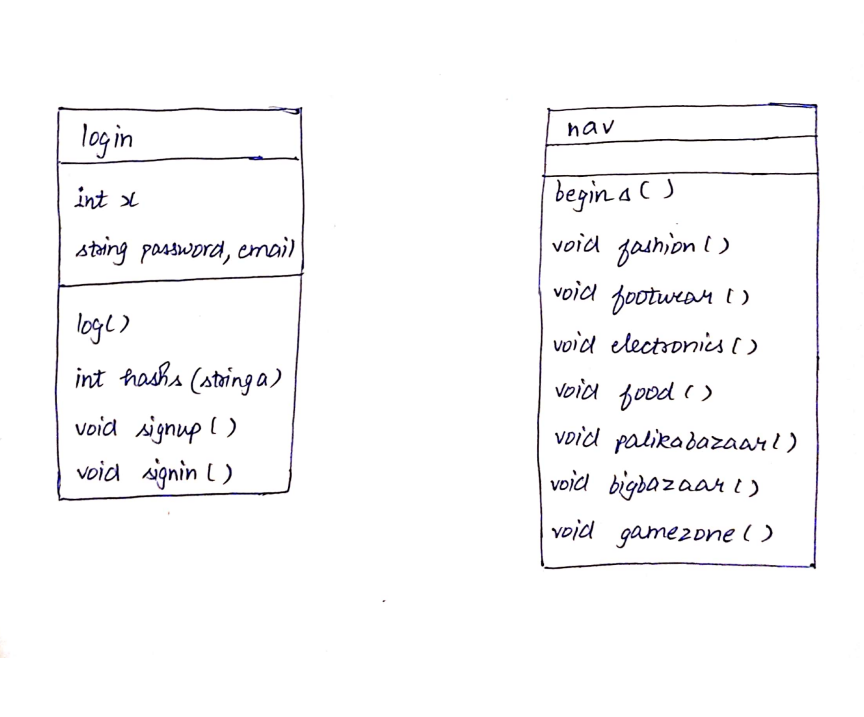 login
int x
string password, email
log()
int hashs (string a)
void signup()
void signin()
nav
begins()
void fashion()
void footwear()
void electronics()
void food()
void palikabazaar()
void bigbazaar()
void gamezone()